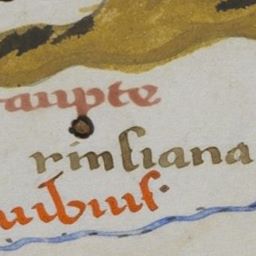 aupte
rinſiana
uibiuſ.